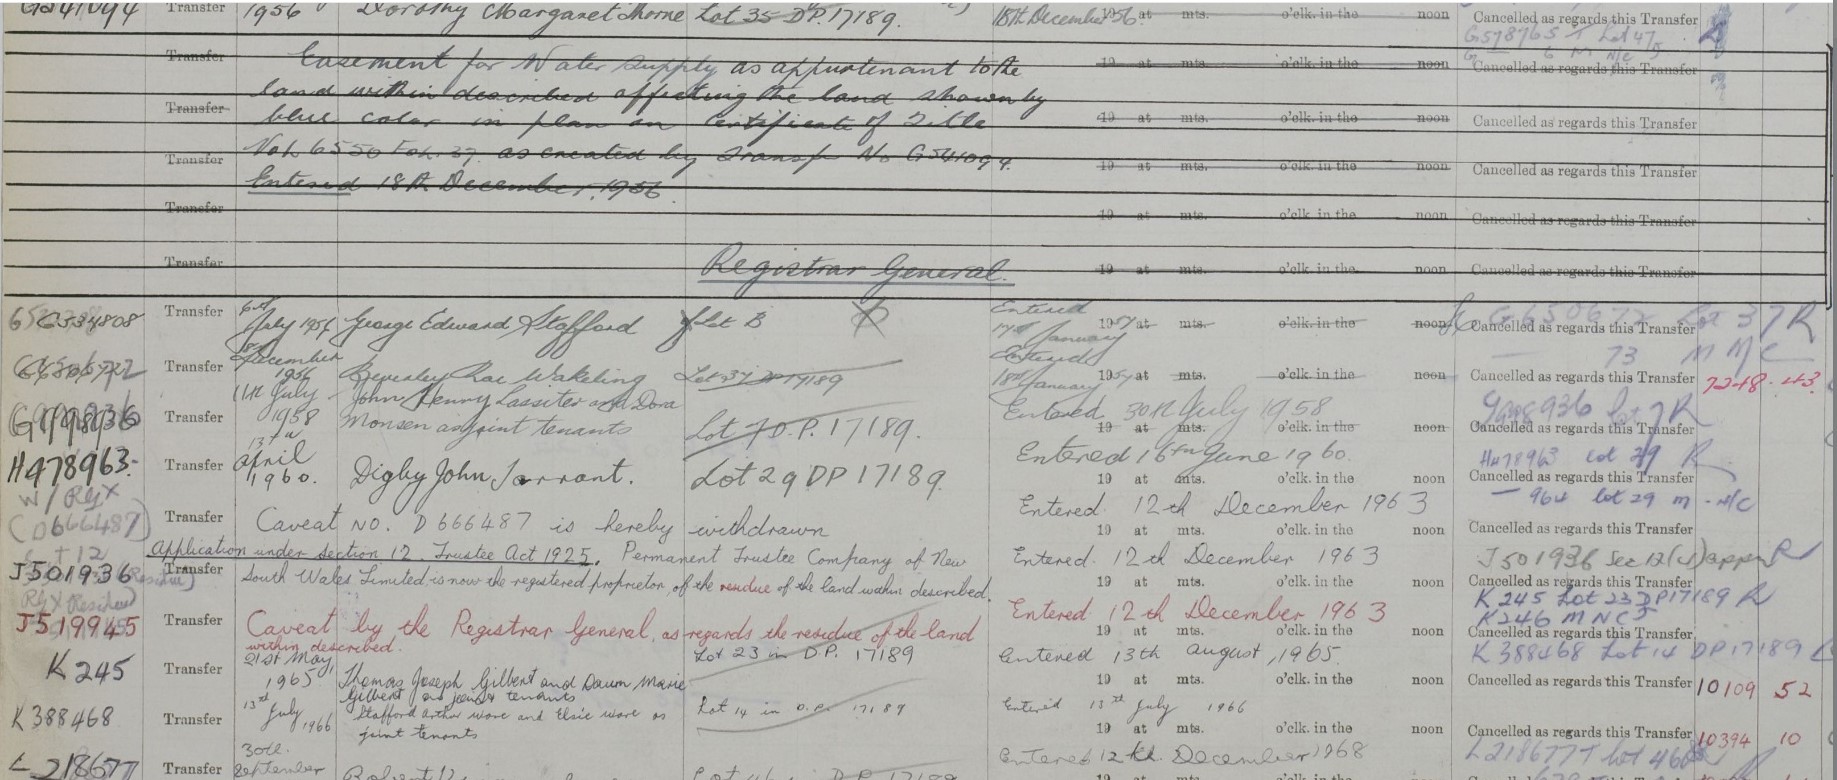 G541094 Transfer 1956 Dorothy Margaret Thorne Lot 35 D.P. 17189. 18th December 1956 at mts. o'clk. in the noon Cancelled as regards this Transfer
G578765 T Lot 47/5
Transfer Easement for Water Supply as appurtenant to the 19 at mts. o'clk. in the noon Cancelled as regards this Transfer
land within described affecting the land shown by
Transfer blue color in plan on Certificate of Title 19 at mts. o'clk. in the noon Cancelled as regards this Transfer
Vol. 6550 Fol. 37 as created by Transfer No G541094.
Transfer 19 at mts. o'clk. in the noon Cancelled as regards this Transfer
Entered 18th December, 1956
Transfer 19 at mts. o'clk. in the noon Cancelled as regards this Transfer
Transfer Registrar General. 19 at mts. o'clk. in the noon Cancelled as regards this Transfer
6th Entered
G534808 Transfer July 1956 George Edward Stafford Lot B 17th January 1957 at mts. o'clk. in the noon Cancelled as regards this Transfer
G650672 Lot 37 R
18th December Entered 73 M N C
G650672 Transfer 1956 Beverley Rae Wakeling Lot 37 DP 17189 18th January 1957 at mts. o'clk. in the noon Cancelled as regards this Transfer 7248 43
11th July John Henry Lassiter and Dora Entered 30th July 1958 G998936 Lot 7 R
G998936 Transfer 1958 Monsen as joint tenants Lot 7 D.P. 17189. 19 at mts. o'clk. in the noon Cancelled as regards this Transfer
13th April Entered 16th June 1960. H478963 Lot 29 R
H478963 Transfer 1960. Digby John Tarrant. Lot 29 DP 17189. 19 at mts. o'clk. in the noon Cancelled as regards this Transfer
W/ RGX Entered 12th December 1963 — 964 lot 29 M - N/C
(D666487) Transfer Caveat No. D666487 is hereby withdrawn 19 at mts. o'clk. in the noon Cancelled as regards this Transfer
Application under Section 12. Trustee Act 1925. Permanent Trustee Company of New Entered. 12th December 1963 J501936 Sec 12(c) appn R
J501936 Transfer South Wales Limited is now the registered proprietor, of the residue of the land within described. 19 at mts. o'clk. in the noon Cancelled as regards this Transfer
RGX Residue Entered 12th December 1963 K 245 Lot 23 DP17189 R
K 246 M N C 5
J519945 Transfer Caveat by the Registrar General, as regards the residue of the land 19 at mts. o'clk. in the noon Cancelled as regards this Transfer
within described.
21st May Lot 23 in D.P. 17189 Entered 13th August, 1965. K 388468 Lot 14 DP17189
K 245 Transfer 1965 Thomas Joseph Gilbert and Dawn Marie 19 at mts. o'clk. in the noon Cancelled as regards this Transfer 10109 52
Gilbert as joint tenants
13th July Lot 14 in D.P. 17189 Entered 13th July 1966
K 388468 Transfer 1966 Stafford Arthur Wore and Elsie Wore as 19 at mts. o'clk. in the noon Cancelled as regards this Transfer 10394 10
joint tenants
30th Entered 12th December 1968 L218677 T Lot 46
L218677 Transfer September D.P. 17189 19 at mts. o'clk. in the noon Cancelled as regards this Transfer